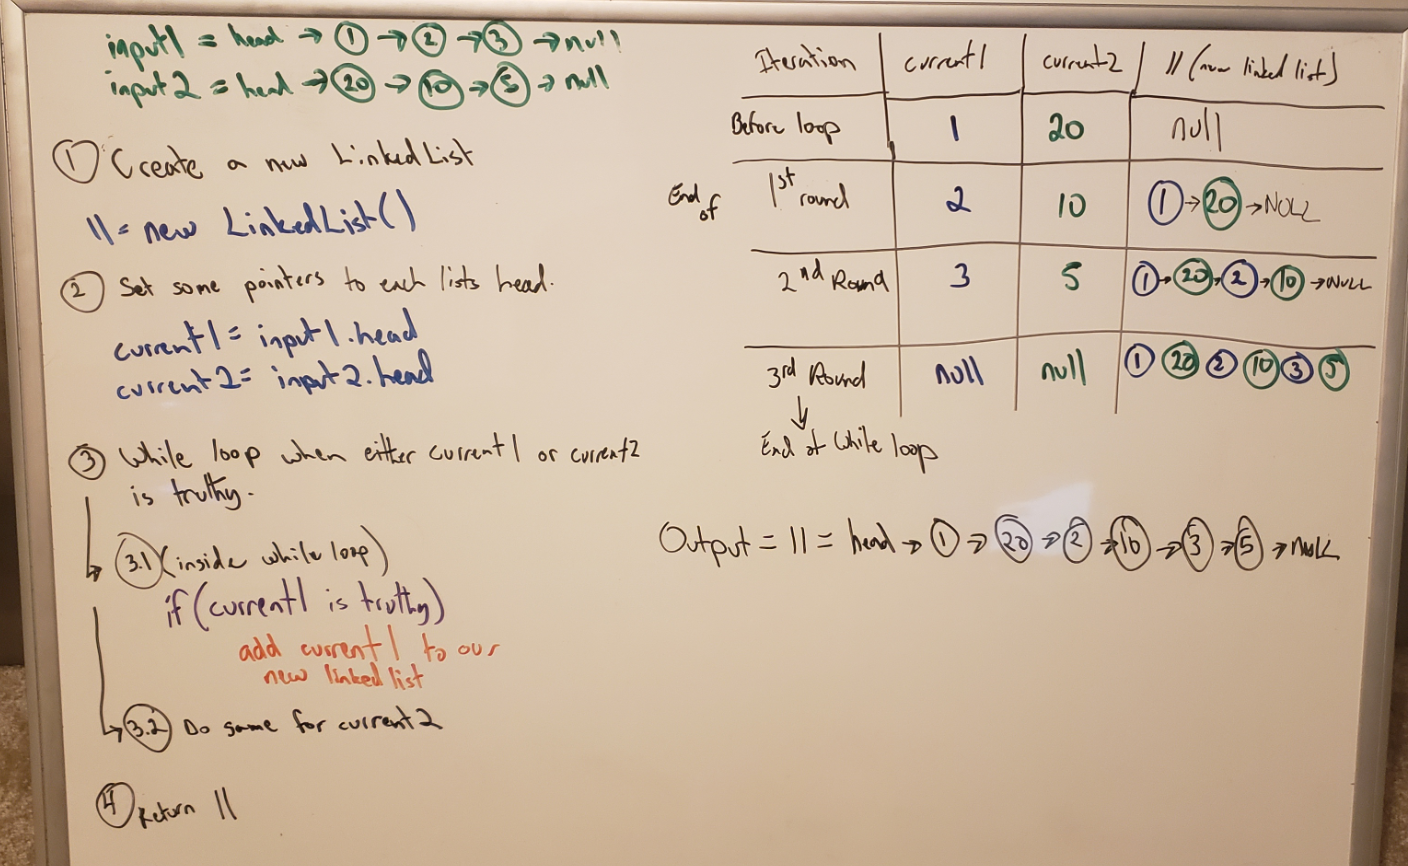 input1 = head → 1 → 2 → 3 → null
input2 = head → 20 → 10 → 5 → null
1 Create a new LinkedList
ll = new LinkedList()
2 Set some pointers to each lists head.
current1 = input1.head
current2 = input2.head
3 While loop when either current1 or current2
is truthy.
3.1 (inside while loop)
if (current1 is truthy)
add current1 to our
new linked list
3.2 Do same for current2
4 Return ll
Iteration current1 current2 ll (new linked list)
Before loop 1 20 null
End of 1st round 2 10 1 → 20 → NULL
2nd Round 3 5 1 → 20 → 2 → 10 → NULL
3rd Round null null 1 20 2 10 3 5
↓
End of While loop
Output = ll = head → 1 → 20 → 2 → 10 → 3 → 5 → NULL